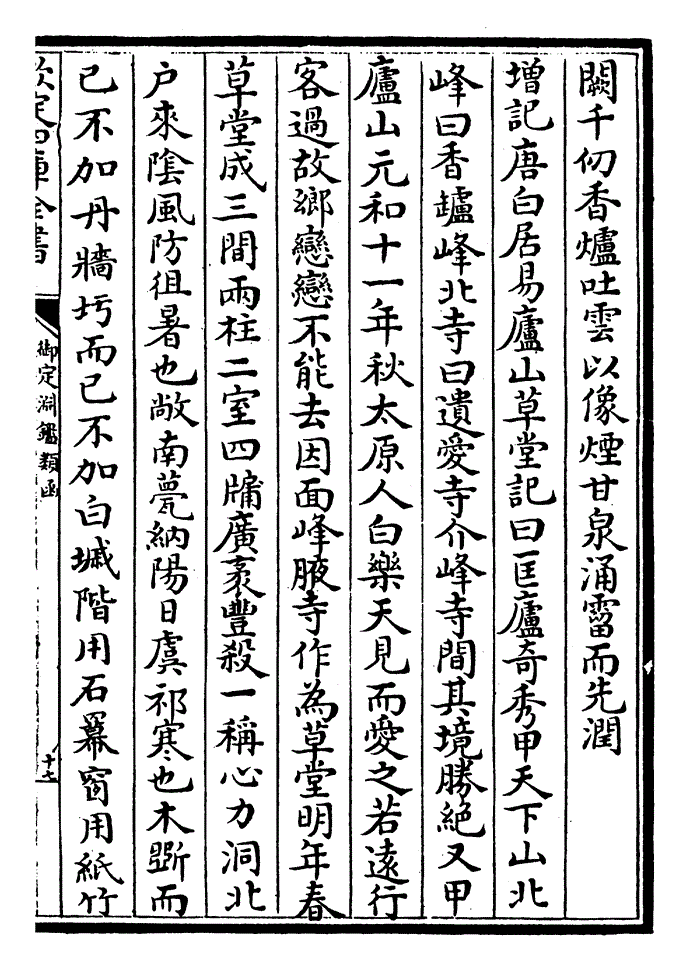 闕千仞香爐吐雲以像煙甘泉涌霤而先潤
増記唐白居易廬山草堂記曰匡廬奇秀甲天下山北
峰曰香鑪峰北寺曰遺愛寺介峰寺間其境勝絶又甲
廬山元和十一年秋太原人白樂天見而愛之若逺行
客過故鄉戀戀不能去因面峰腋寺作為草堂明年春
草堂成三間兩柱二室四牖廣袤豐殺一稱心力洞北
户來隂風防徂暑也敞南甍納陽日虞祁寒也木斲而
已不加丹牆圬而已不加白墄階用石羃窗用紙竹
欽定四庫全書
御定淵鑑類函
十七